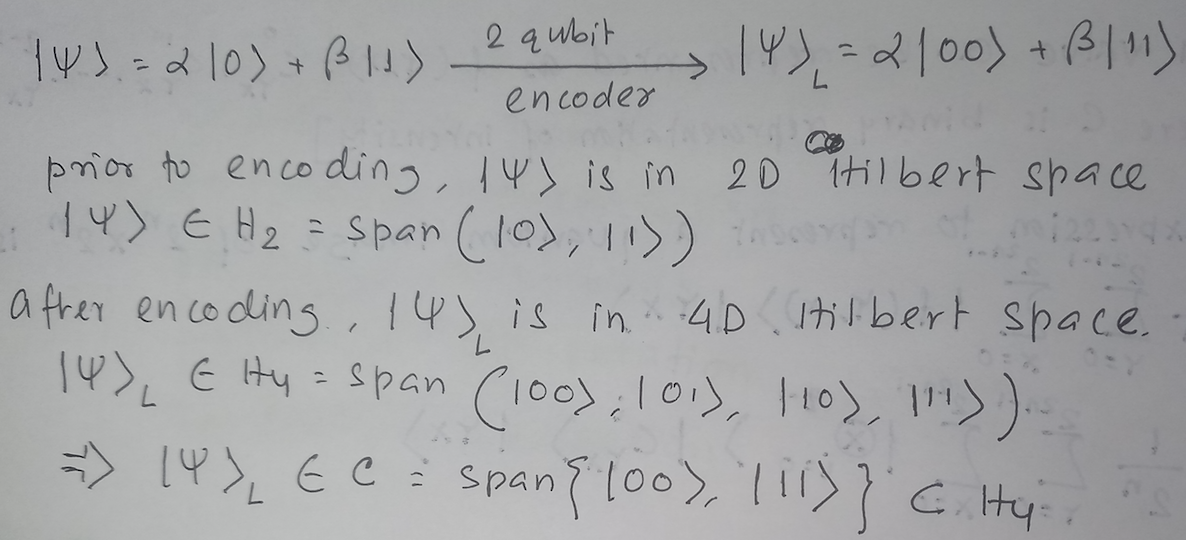 |Ψ⟩ = α|0⟩ + β|1⟩ 2 qubit encoder → |Ψ⟩_L = α|00⟩ + β|11⟩
prior to encoding, |Ψ⟩ is in 2D Hilbert space
|Ψ⟩ ∈ H₂ = span(|0⟩, |1⟩)
after encoding, |Ψ⟩_L is in 4D Hilbert space.
|Ψ⟩_L ∈ H₄ = span(|00⟩, |01⟩, |10⟩, |11⟩)
⇒ |Ψ⟩_L ∈ C = span{|00⟩, |11⟩} ⊂ H₄